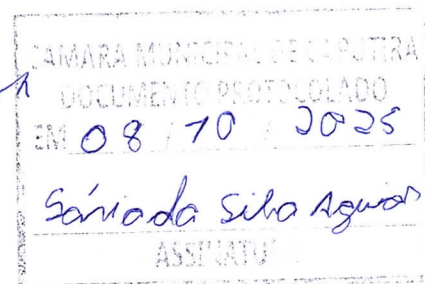 CAMARA MUNICIPAL DE CAPUTIRA
DOCUMENTO PROTOCOLADO
EM 08 / 10 / 2025
Sánia da Silva Aguiar
ASSINATURA